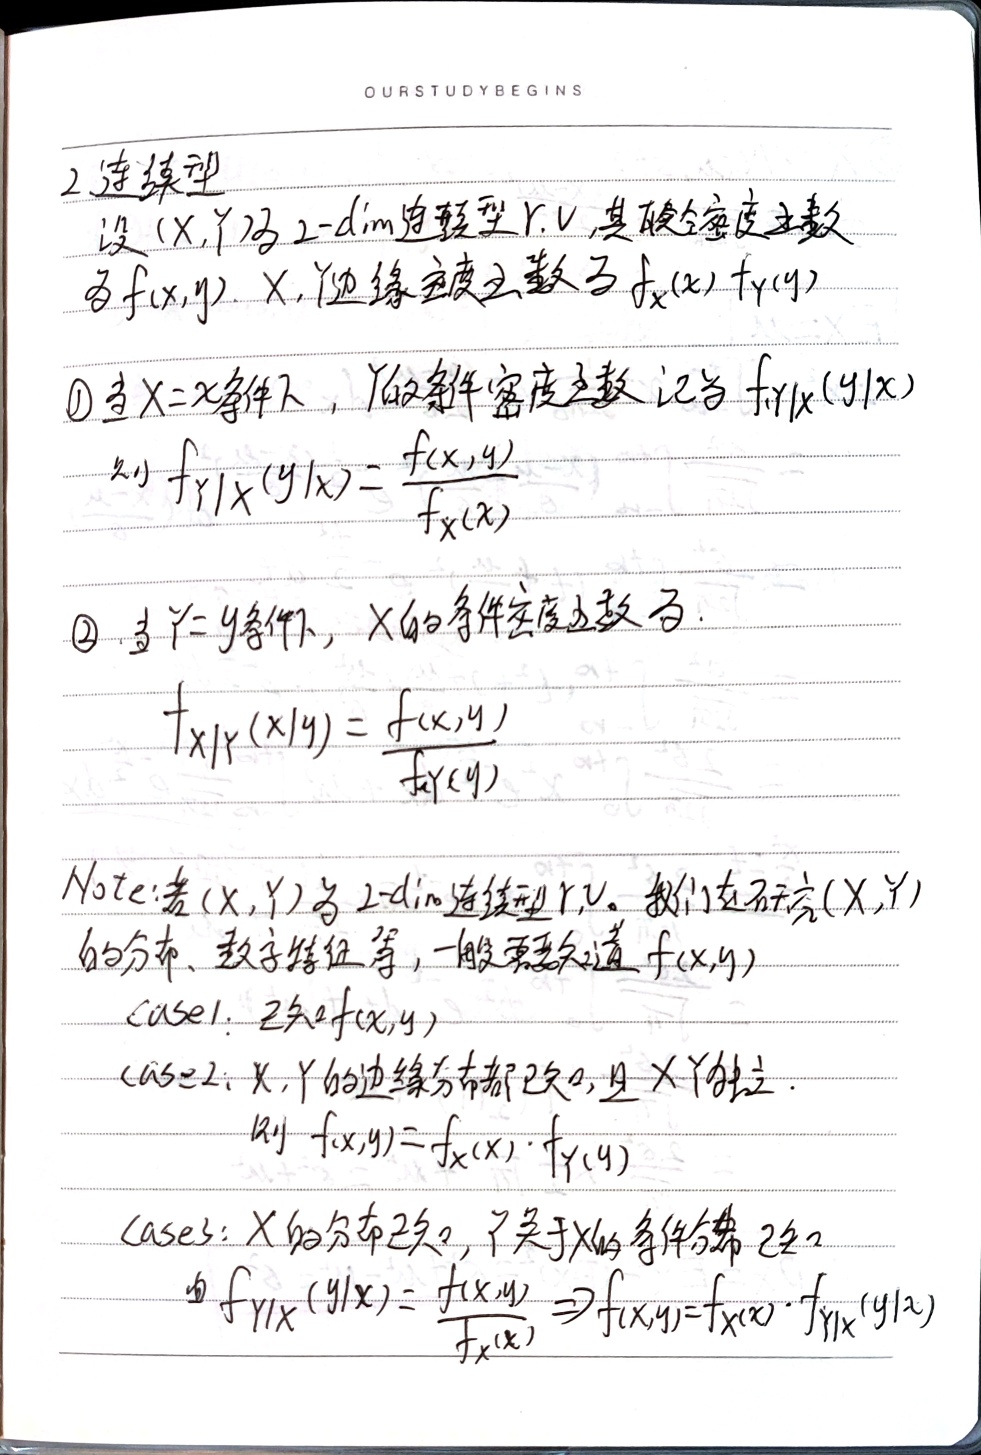 OURSTUDYBEGINS
2 连续型
设(X,Y)为2-dim连续型r.v,其联合密度函数
为f(x,y). X,Y边缘密度函数为 f_X(x) f_Y(y)
① 当X=x条件下, Y的条件密度函数 记为 f_{Y|X}(y|x)
则 f_{Y|X}(y|x) = \frac{f(x,y)}{f_X(x)}
② 当Y=y条件下, X的条件密度函数为.
f_{X|Y}(x|y) = \frac{f(x,y)}{f_Y(y)}
Note: 若(X,Y)为2-dim连续型r.v。我们在研究(X,Y)
的分布、数字特征等,一般需要知道 f(x,y)
case1: 已知f(x,y)
case2: X,Y的边缘分布都已知,且X Y独立.
则 f(x,y)=f_X(x)·f_Y(y)
case3: X的分布已知, Y关于X的条件分布已知
由 f_{Y|X}(y|x) = \frac{f(x,y)}{f_X(x)} ⇒ f(x,y)=f_X(x)·f_{Y|X}(y|x)